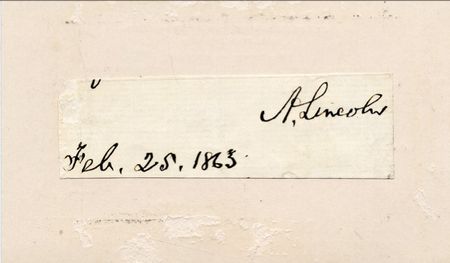 A. Lincoln
Feb. 25. 1863